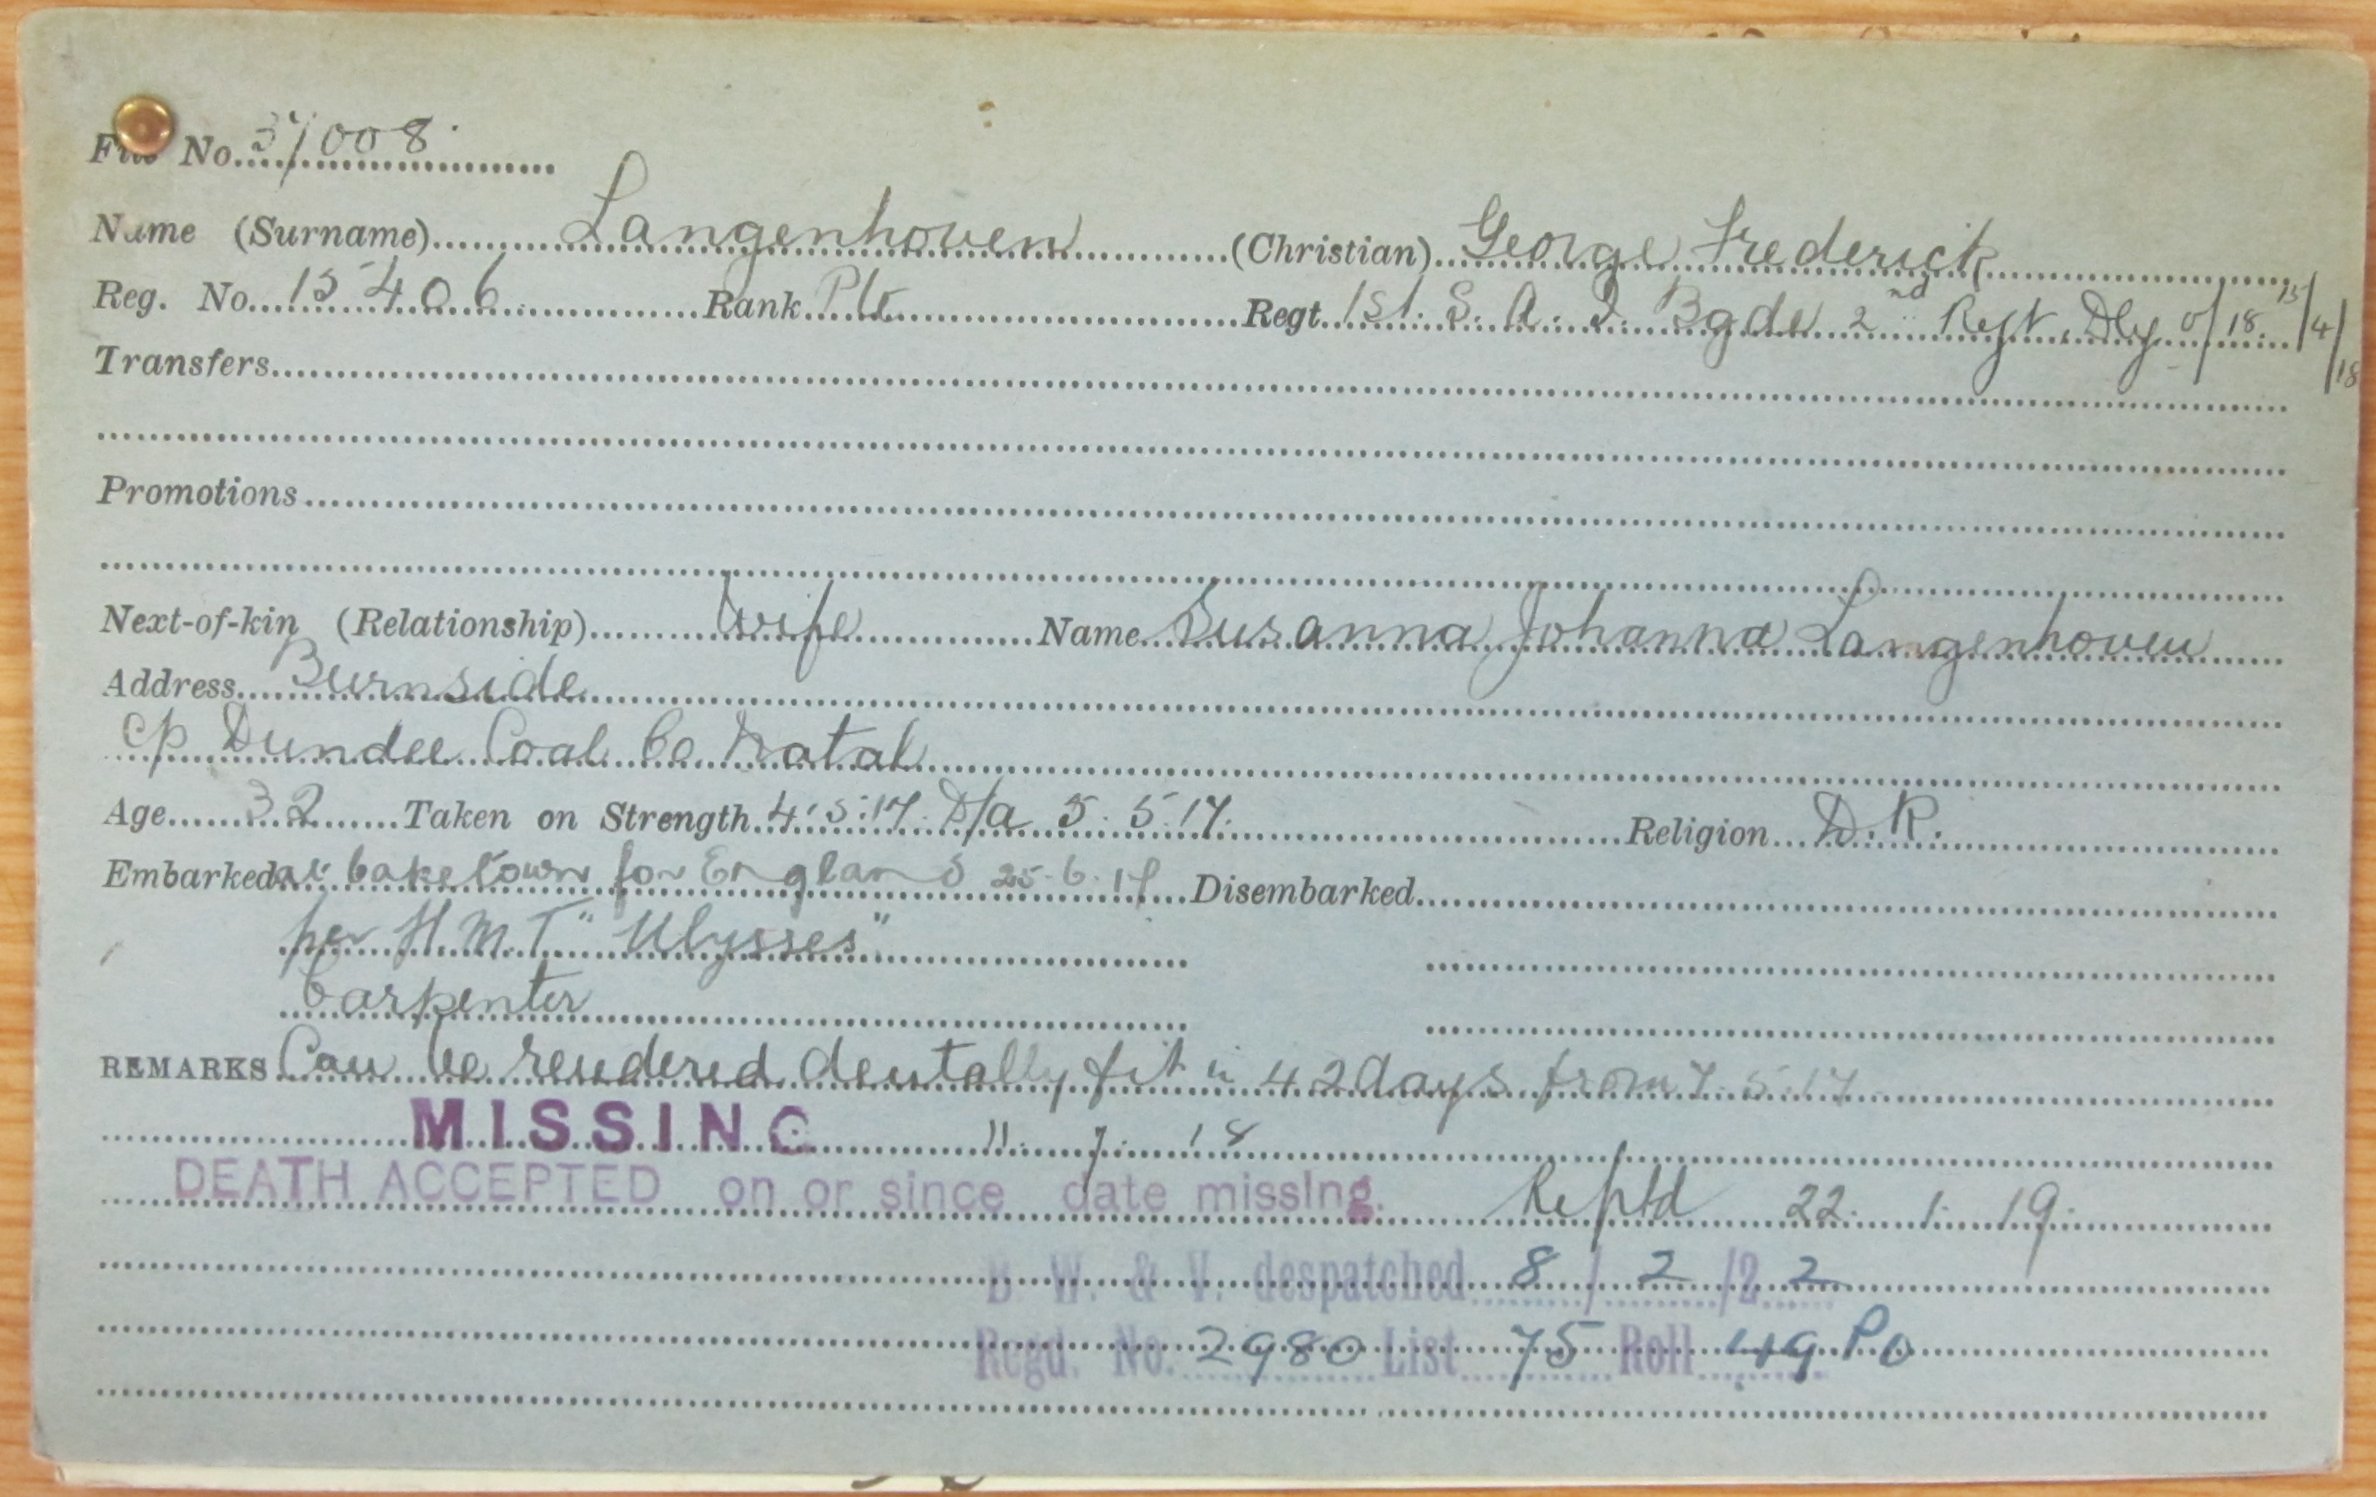 File No. 37008.
Name (Surname) Langenhoven (Christian) George Frederick
Reg. No. 15406 Rank Pte Regt. 1st. S. A. I. Bgde 2nd Regt. Dly o/18. 15/4/18
Transfers
Promotions
Next-of-kin (Relationship) Wife Name Susanna Johanna Langenhoven
Address Burnside
c/o Dundee Coal Co Natal
Age 32 Taken on Strength 4.5.17. D/a 5.5.17. Religion D. R.
Embarked at Capetown for England 25.6.17 Disembarked
per H.M.T "Ulysses"
Carpenter
REMARKS Can be rendered dentally fit in 42 days from 7.5.17
MISSING 11. 7. 18
DEATH ACCEPTED on or since date missing. Reptd 22. 1. 19.
B W. & V. despatched 8 / 2 /22
Regd. No. 2980 List 75 Roll 49 Po